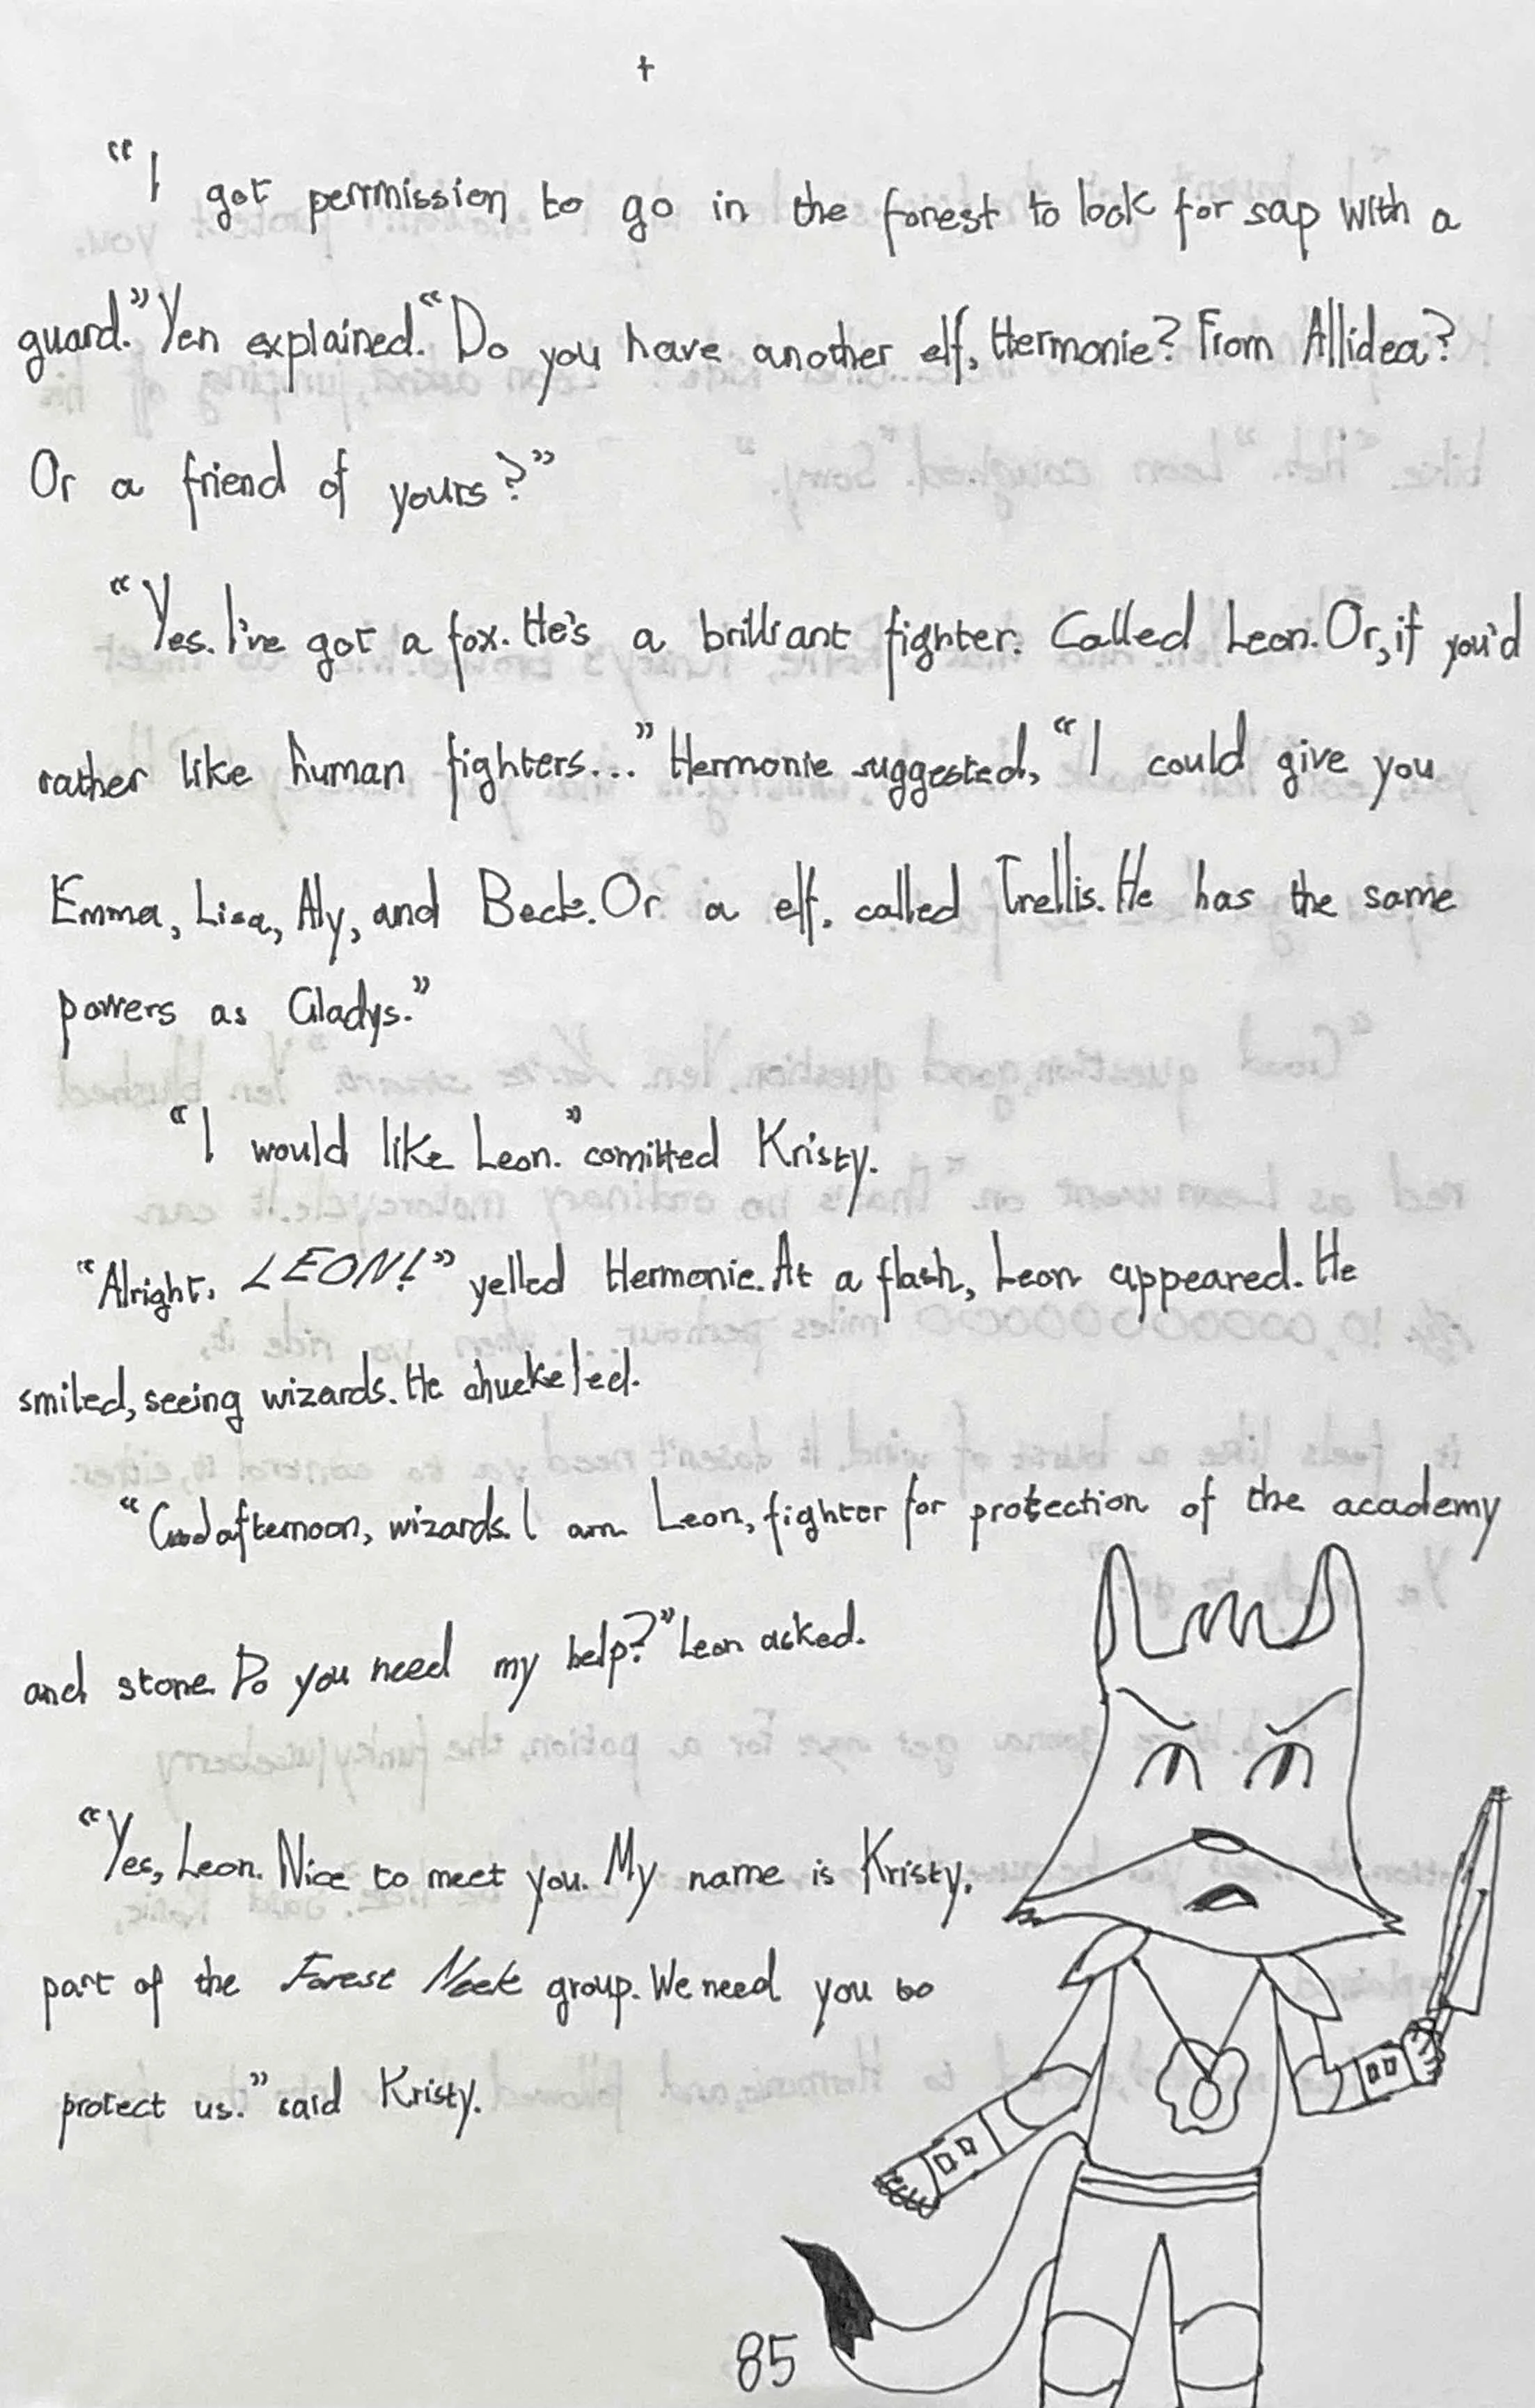 "I got permmission to go in the forest to look for sap with a
guard." Yen explained. "Do you have another elf, Hermonie? From Allidea?
Or a friend of yours?"
"Yes. I've got a fox. He's a brilliant fighter. Called Leon. Or, if you'd
rather like human fighters..." Hermonie suggested, "I could give you
Emma, Lisa, Aly, and Beck. Or a elf, called Trellis. He has the same
powers as Gladys."
"I would like Leon." comitted Kristy.
"Alright, LEON!" yelled Hermonie. At a flash, Leon appeared. He
smiled, seeing wizards. He chuckeled.
"Good afternoon, wizards. I am Leon, fighter for protection of the academy
and stone. Do you need my help?" Leon asked.
"Yes, Leon. Nice to meet you. My name is Kristy,
part of the Forest group. We need you to
protect us." said Kristy.
85